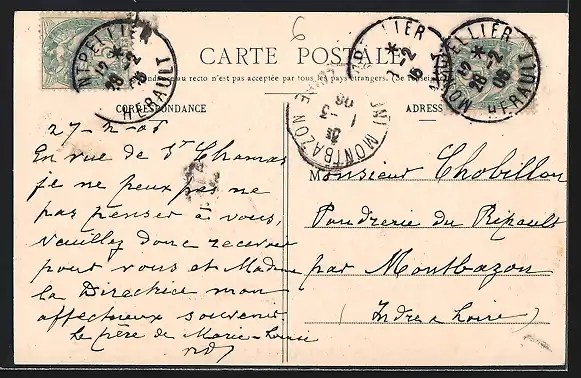 6
CARTE POSTALE
MONTPELLIER
12 *
28 -2
06
HERAULT
MONTPELLIER
12 *
28 -2
06
HERAULT
MONTBAZON
1
3 -
06
CORRESPONDANCE
ADRESSE
27-2-06
En vue de St Chamas
je ne peux pas ne
pas penser à vous,
Veuillez donc recevoir
pour vous et Madame
la Directrice mon
affectueux souvenir
Le père de Marie-Louise
Monsieur Chobillon
Poudrerie du Ripault
par Montbazon
(Indre & Loire)